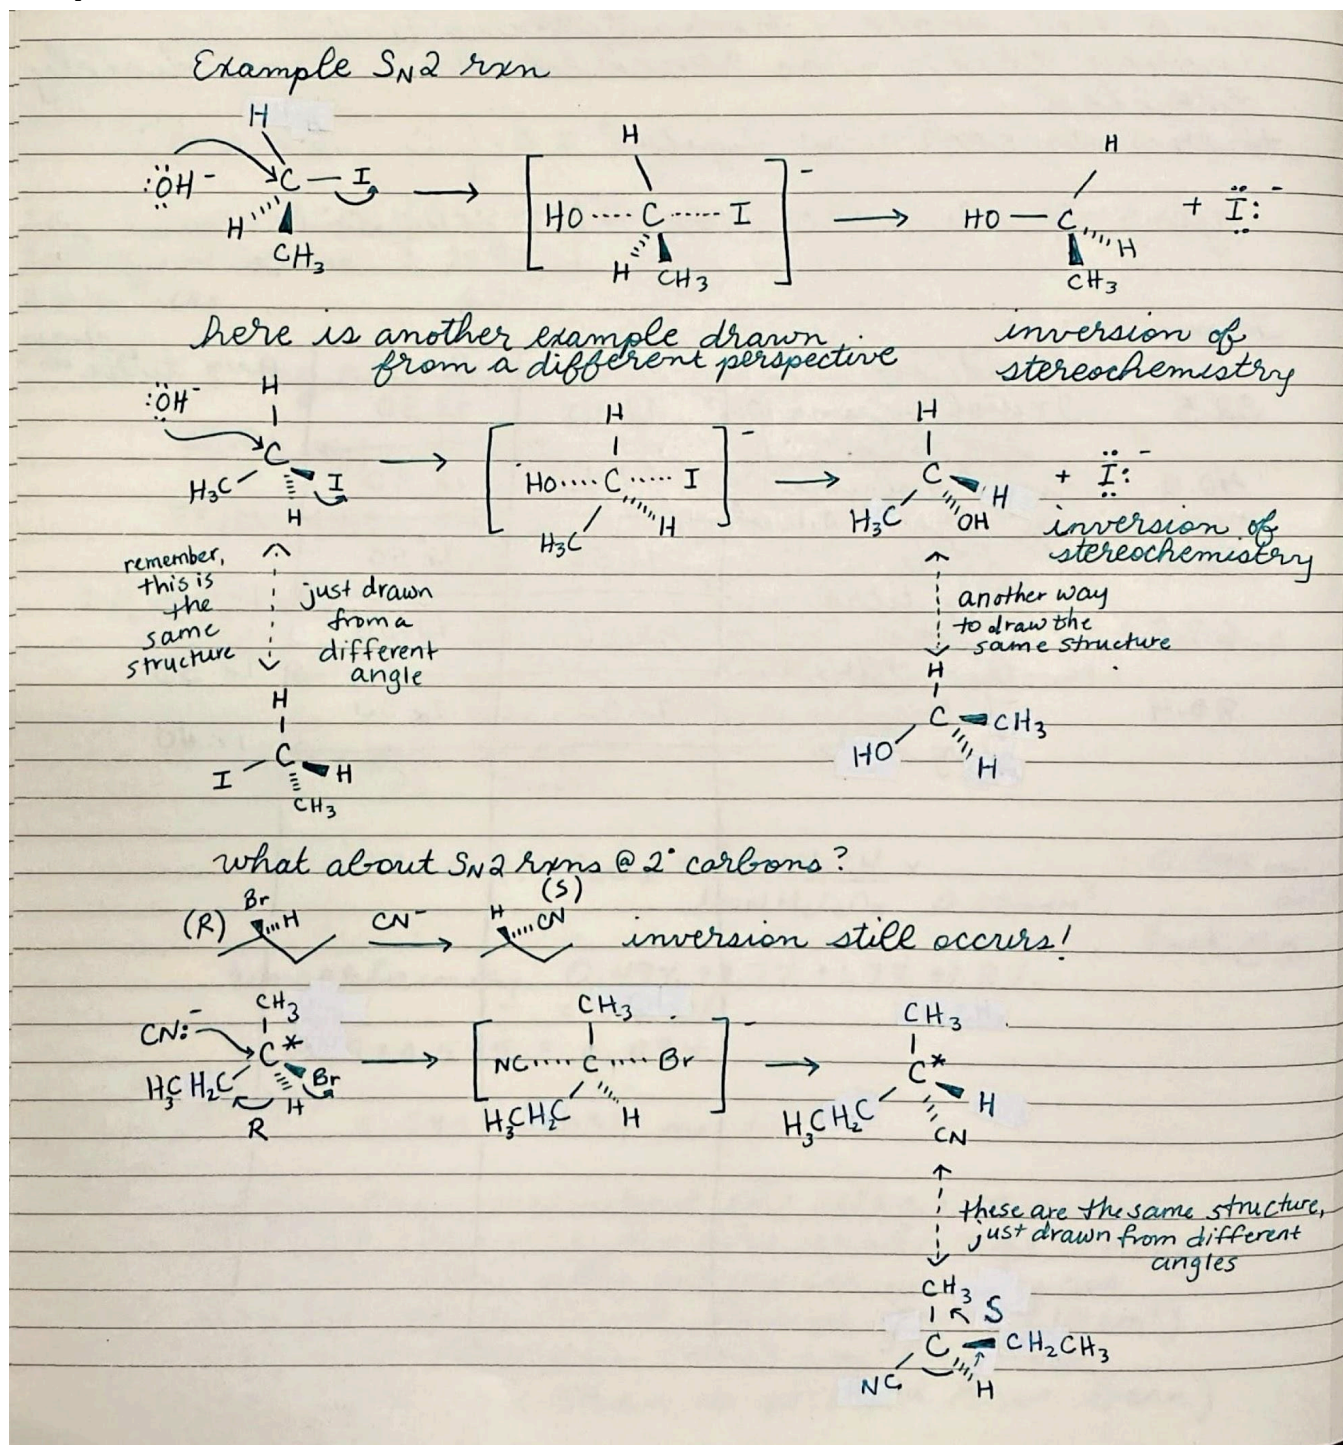 Example SN2 rxn
H
:ÖH⁻ C — I
H
CH3
H
HO ····· C ······ I
H CH3
⁻
H
HO — C
H
CH3
+ I: ⁻
here is another example drawn
from a different perspective
inversion of
stereochemistry
:ÖH⁻
H
C
H3C I
H
H
Ho ····· C ····· I
H3C H
⁻
H
C
H3C H
OH
+ I: ⁻
inversion of
stereochemistry
remember,
this is
the
same
structure
just drawn
from a
different
angle
another way
to draw the
same structure
H
C
I H
CH3
H
C CH3
HO H
what about SN2 rxns @ 2° carbons?
(R) Br H
CN⁻
(S)
H CN
inversion still occurs!
CN:⁻
CH3
C*
H3CH2C Br
H
R
CH3
NC ····· C ····· Br
H3CH2C H
⁻
CH3
C*
H3CH2C H
CN
these are the same structure,
just drawn from different
angles
CH3
S
C CH2CH3
NC H